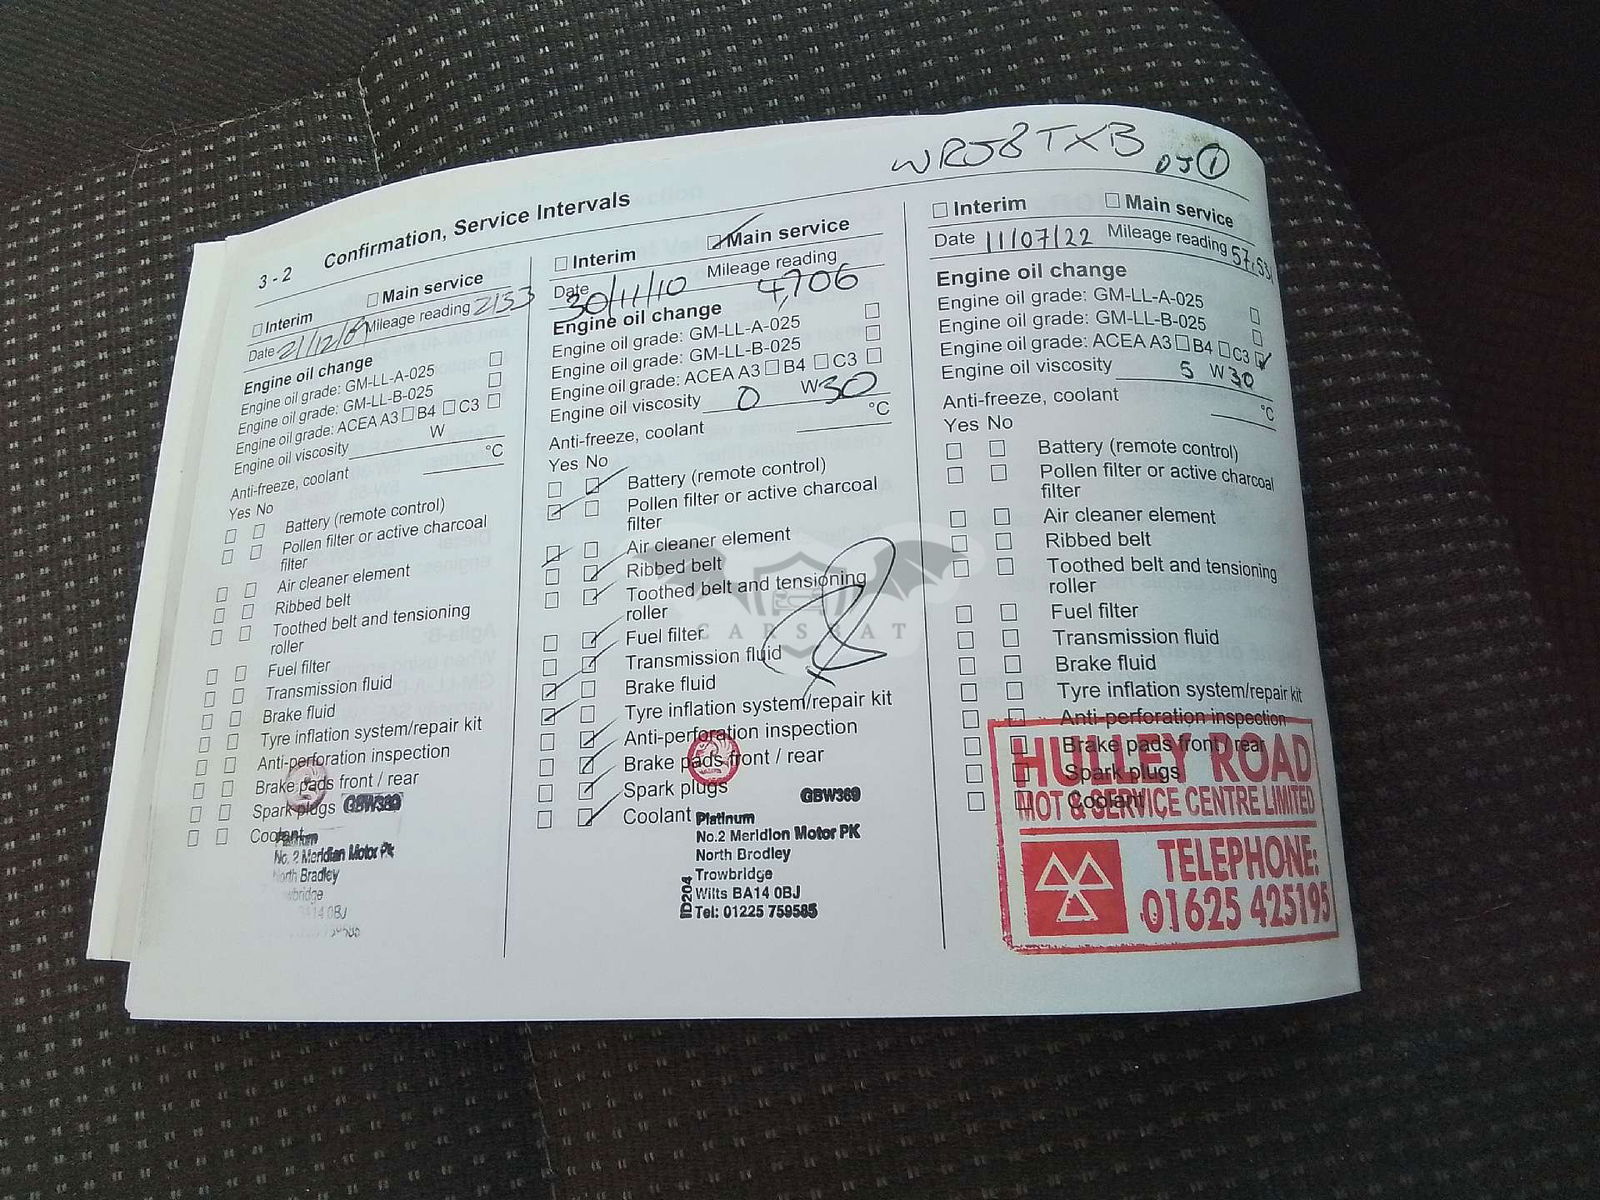 WR58TXB 05 1
3 - 2 Confirmation, Service Intervals
Interim Main service
Date 21/12/09 Mileage reading 2153
Engine oil change
Engine oil grade: GM-LL-A-025
Engine oil grade: GM-LL-B-025
Engine oil grade: ACEA A3 B4 C3
Engine oil viscosity W
Anti-freeze, coolant °C
Yes No
Battery (remote control)
Pollen filter or active charcoal
filter
Air cleaner element
Ribbed belt
Toothed belt and tensioning
roller
Fuel filter
Transmission fluid
Brake fluid
Tyre inflation system/repair kit
Anti-perforation inspection
Brake pads front / rear
Spark plugs
Coolant
GBW369
No.2 Meridian Motor PK
North Bradley
BA14 0BJ
Interim Main service
Date 30/11/10 Mileage reading 4,706
Engine oil change
Engine oil grade: GM-LL-A-025
Engine oil grade: GM-LL-B-025
Engine oil grade: ACEA A3 B4 C3
Engine oil viscosity 0 W 30
Anti-freeze, coolant °C
Yes No
Battery (remote control)
Pollen filter or active charcoal
filter
Air cleaner element
Ribbed belt
Toothed belt and tensioning
roller
Fuel filter
Transmission fluid
Brake fluid
Tyre inflation system/repair kit
Anti-perforation inspection
Brake pads front / rear
Spark plugs
Coolant
GBW369
Platinum
No.2 Meridion Motor PK
North Brodley
Trowbridge
Wilts BA14 0BJ
Tel: 01225 759585
ID204
Interim Main service
Date 11/07/22 Mileage reading 57,53
Engine oil change
Engine oil grade: GM-LL-A-025
Engine oil grade: GM-LL-B-025
Engine oil grade: ACEA A3 B4 C3
Engine oil viscosity 5 W 30
Anti-freeze, coolant °C
Yes No
Battery (remote control)
Pollen filter or active charcoal
filter
Air cleaner element
Ribbed belt
Toothed belt and tensioning
roller
Fuel filter
Transmission fluid
Brake fluid
Tyre inflation system/repair kit
Anti-perforation inspection
Brake pads front / rear
Spark plugs
Coolant
HULLEY ROAD
MOT & SERVICE CENTRE LIMITED
TELEPHONE:
01625 425195
CARSBAT